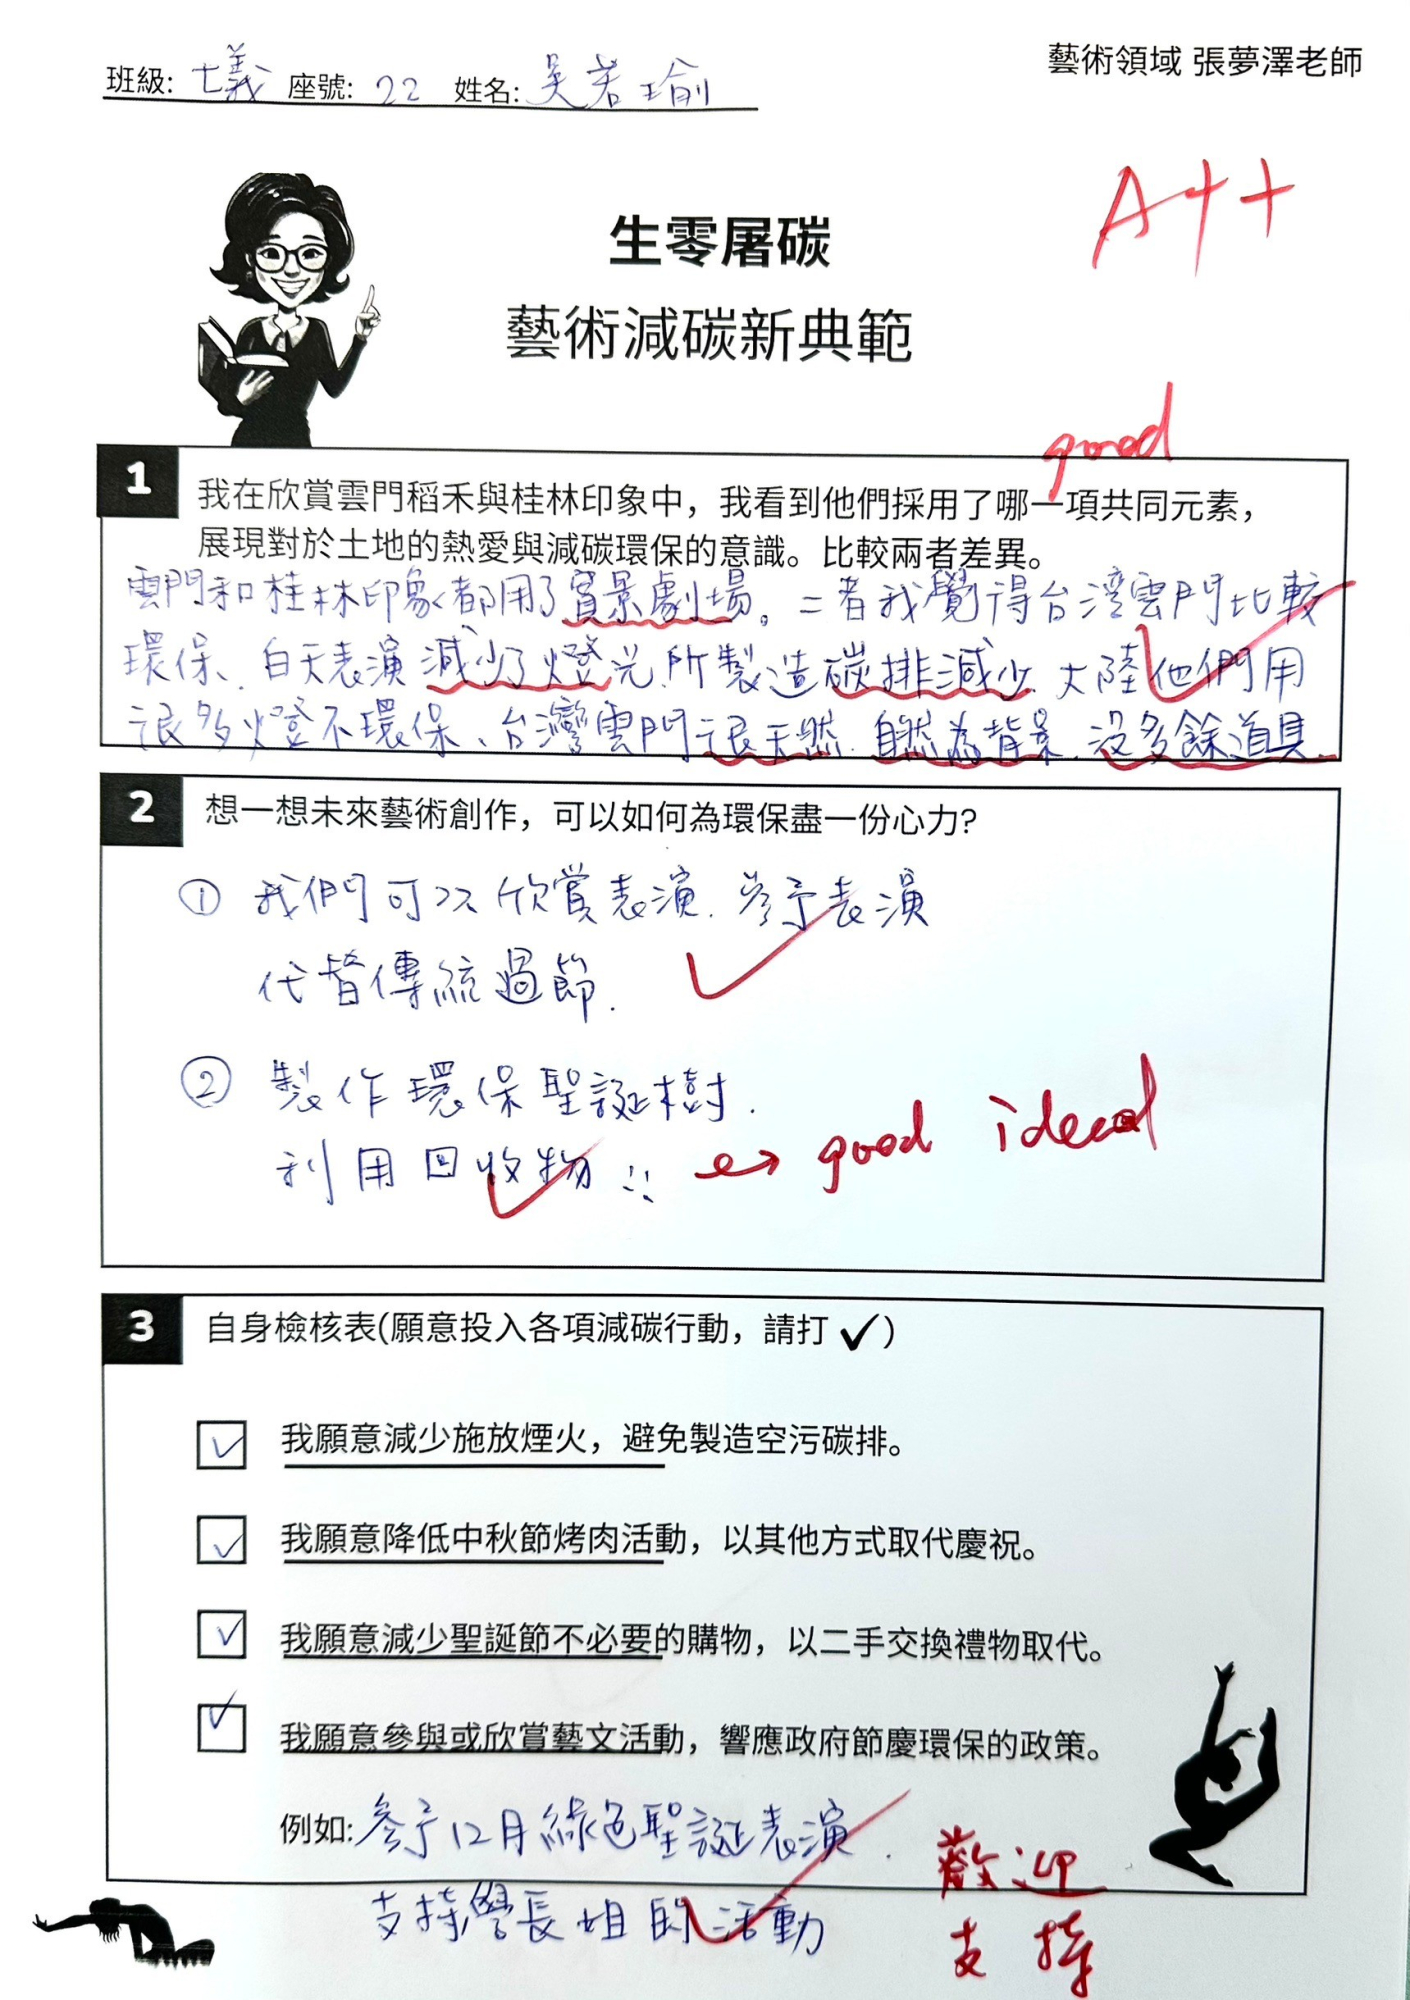 藝術領域 張夢澤老師
班級: 七義 座號: 22 姓名: 吳若瑜
A++
生零屠碳
藝術減碳新典範
good
1
我在欣賞雲門稻禾與桂林印象中，我看到他們採用了哪一項共同元素，
展現對於土地的熱愛與減碳環保的意識。比較兩者差異。
雲門和桂林印象都用了實景劇場。二者我覺得台灣雲門比較
環保、白天表演減少了燈光所製造碳排減少、大陸他們用
很多燈不環保、台灣雲門很天然、自然為背景、沒多餘道具、
2
想一想未來藝術創作，可以如何為環保盡一份心力?
① 我們可以欣賞表演、參予表演
代替傳統過節.
② 製作環保聖誕樹.
利用回收物!!
good idea!
3
自身檢核表(願意投入各項減碳行動，請打✓)
☑ 我願意減少施放煙火，避免製造空污碳排。
☑ 我願意降低中秋節烤肉活動，以其他方式取代慶祝。
☑ 我願意減少聖誕節不必要的購物，以二手交換禮物取代。
☑ 我願意參與或欣賞藝文活動，響應政府節慶環保的政策。
例如:參予12月綠色聖誕表演.
支持學長姐的活動
歡迎
支持